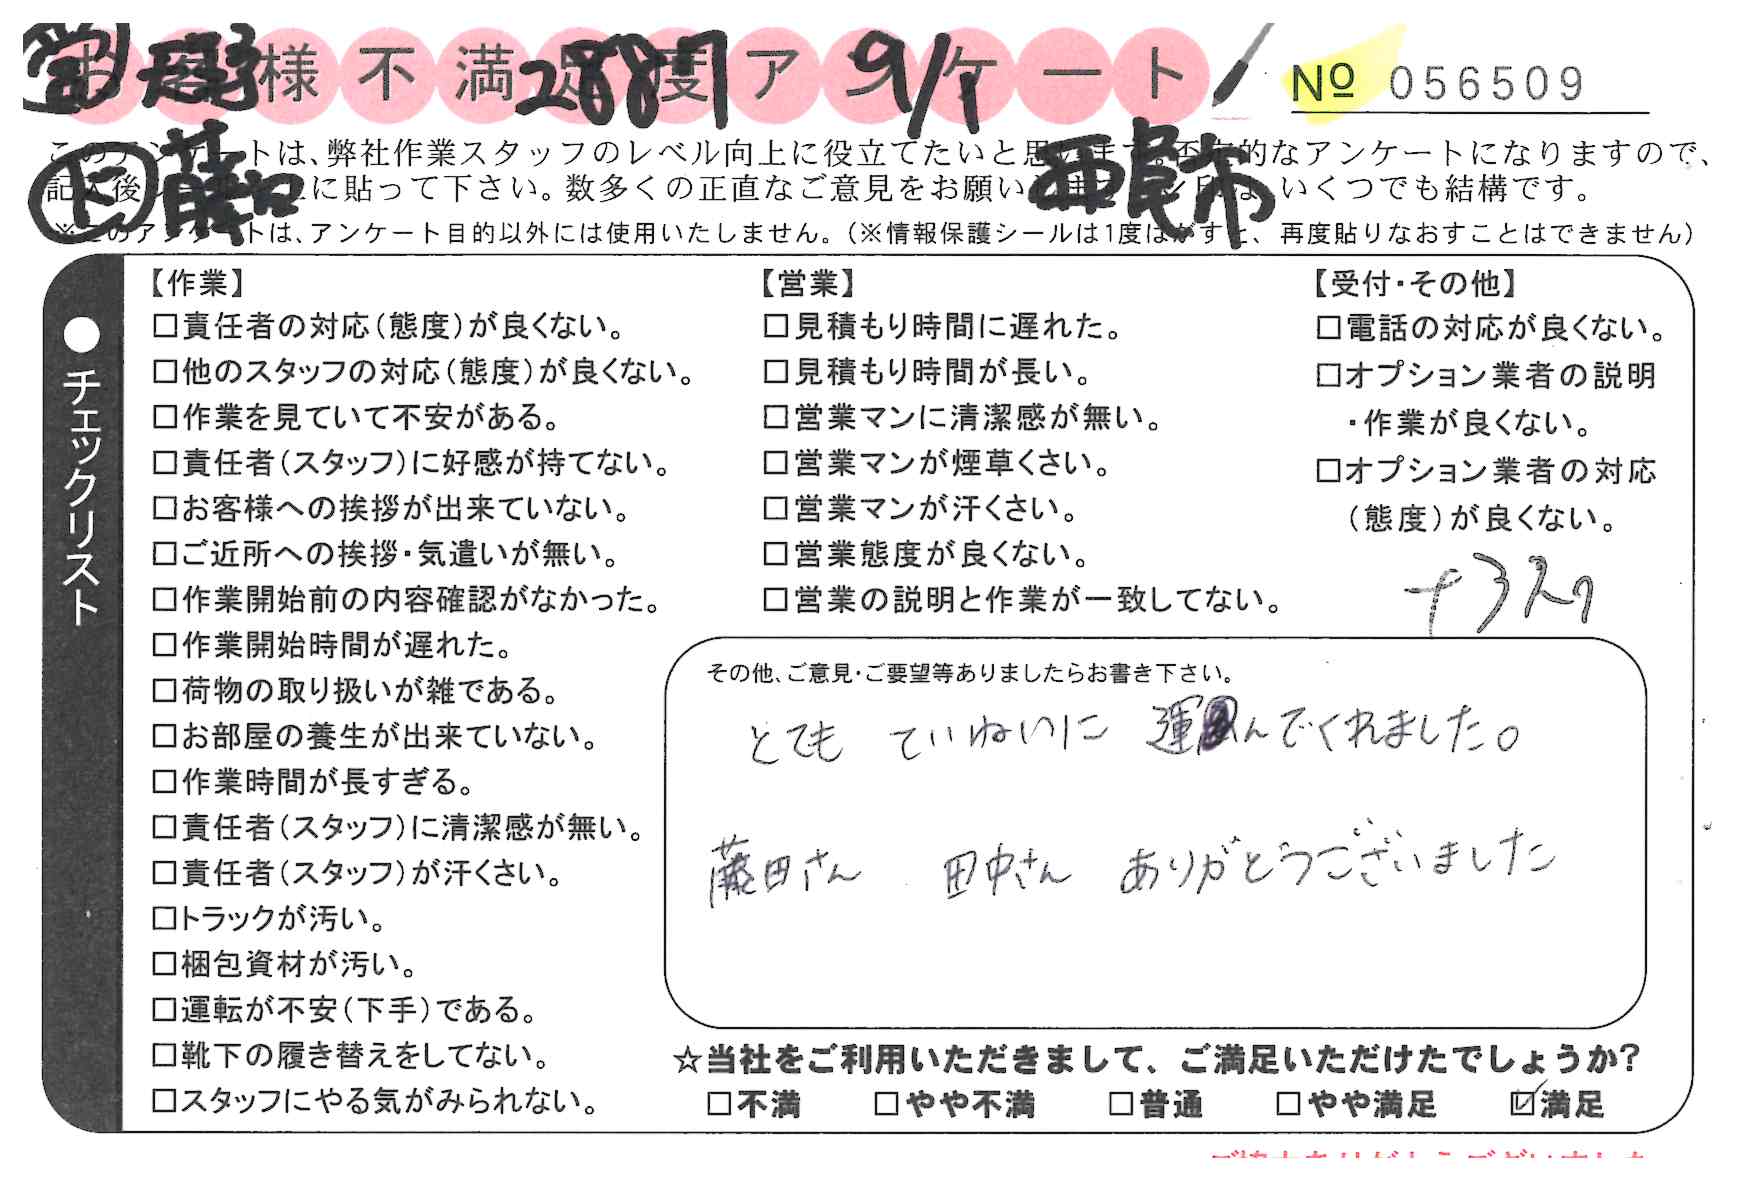 お客様不満足度アンケート
2887
9/1
№ 056509
このアンケートは、弊社作業スタッフのレベル向上に役立てたいと思います。否定的なアンケートになりますので、
記入後シールを上に貼って下さい。数多くの正直なご意見をお願いします。いくつでも結構です。
西尾市
※このアンケートは、アンケート目的以外には使用いたしません。（※情報保護シールは1度はがすと、再度貼りなおすことはできません）
●チェックリスト
【作業】
□責任者の対応（態度）が良くない。
□他のスタッフの対応（態度）が良くない。
□作業を見ていて不安がある。
□責任者（スタッフ）に好感が持てない。
□お客様への挨拶が出来ていない。
□ご近所への挨拶・気遣いが無い。
□作業開始前の内容確認がなかった。
□作業開始時間が遅れた。
□荷物の取り扱いが雑である。
□お部屋の養生が出来ていない。
□作業時間が長すぎる。
□責任者（スタッフ）に清潔感が無い。
□責任者（スタッフ）が汗くさい。
□トラックが汚い。
□梱包資材が汚い。
□運転が不安（下手）である。
□靴下の履き替えをしてない。
□スタッフにやる気がみられない。
【営業】
□見積もり時間に遅れた。
□見積もり時間が長い。
□営業マンに清潔感が無い。
□営業マンが煙草くさい。
□営業マンが汗くさい。
□営業態度が良くない。
□営業の説明と作業が一致してない。
【受付・その他】
□電話の対応が良くない。
□オプション業者の説明
・作業が良くない。
□オプション業者の対応
（態度）が良くない。
その他、ご意見・ご要望等ありましたらお書き下さい。
とても ていねいに 運んでくれました。
藤田さん 田中さん ありがとうございました
☆当社をご利用いただきまして、ご満足いただけたでしょうか?
□不満 □やや不満 □普通 □やや満足 ☑満足
ご協力ありがとうございました